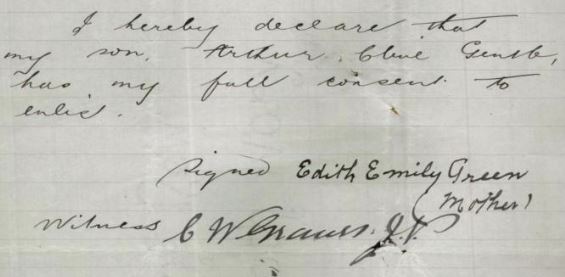 I hereby declare that
my son, Arthur Clive Gentle,
has my full consent to
enlist.
Signed Edith Emily Green
(Mother)
Witness C W J.P.